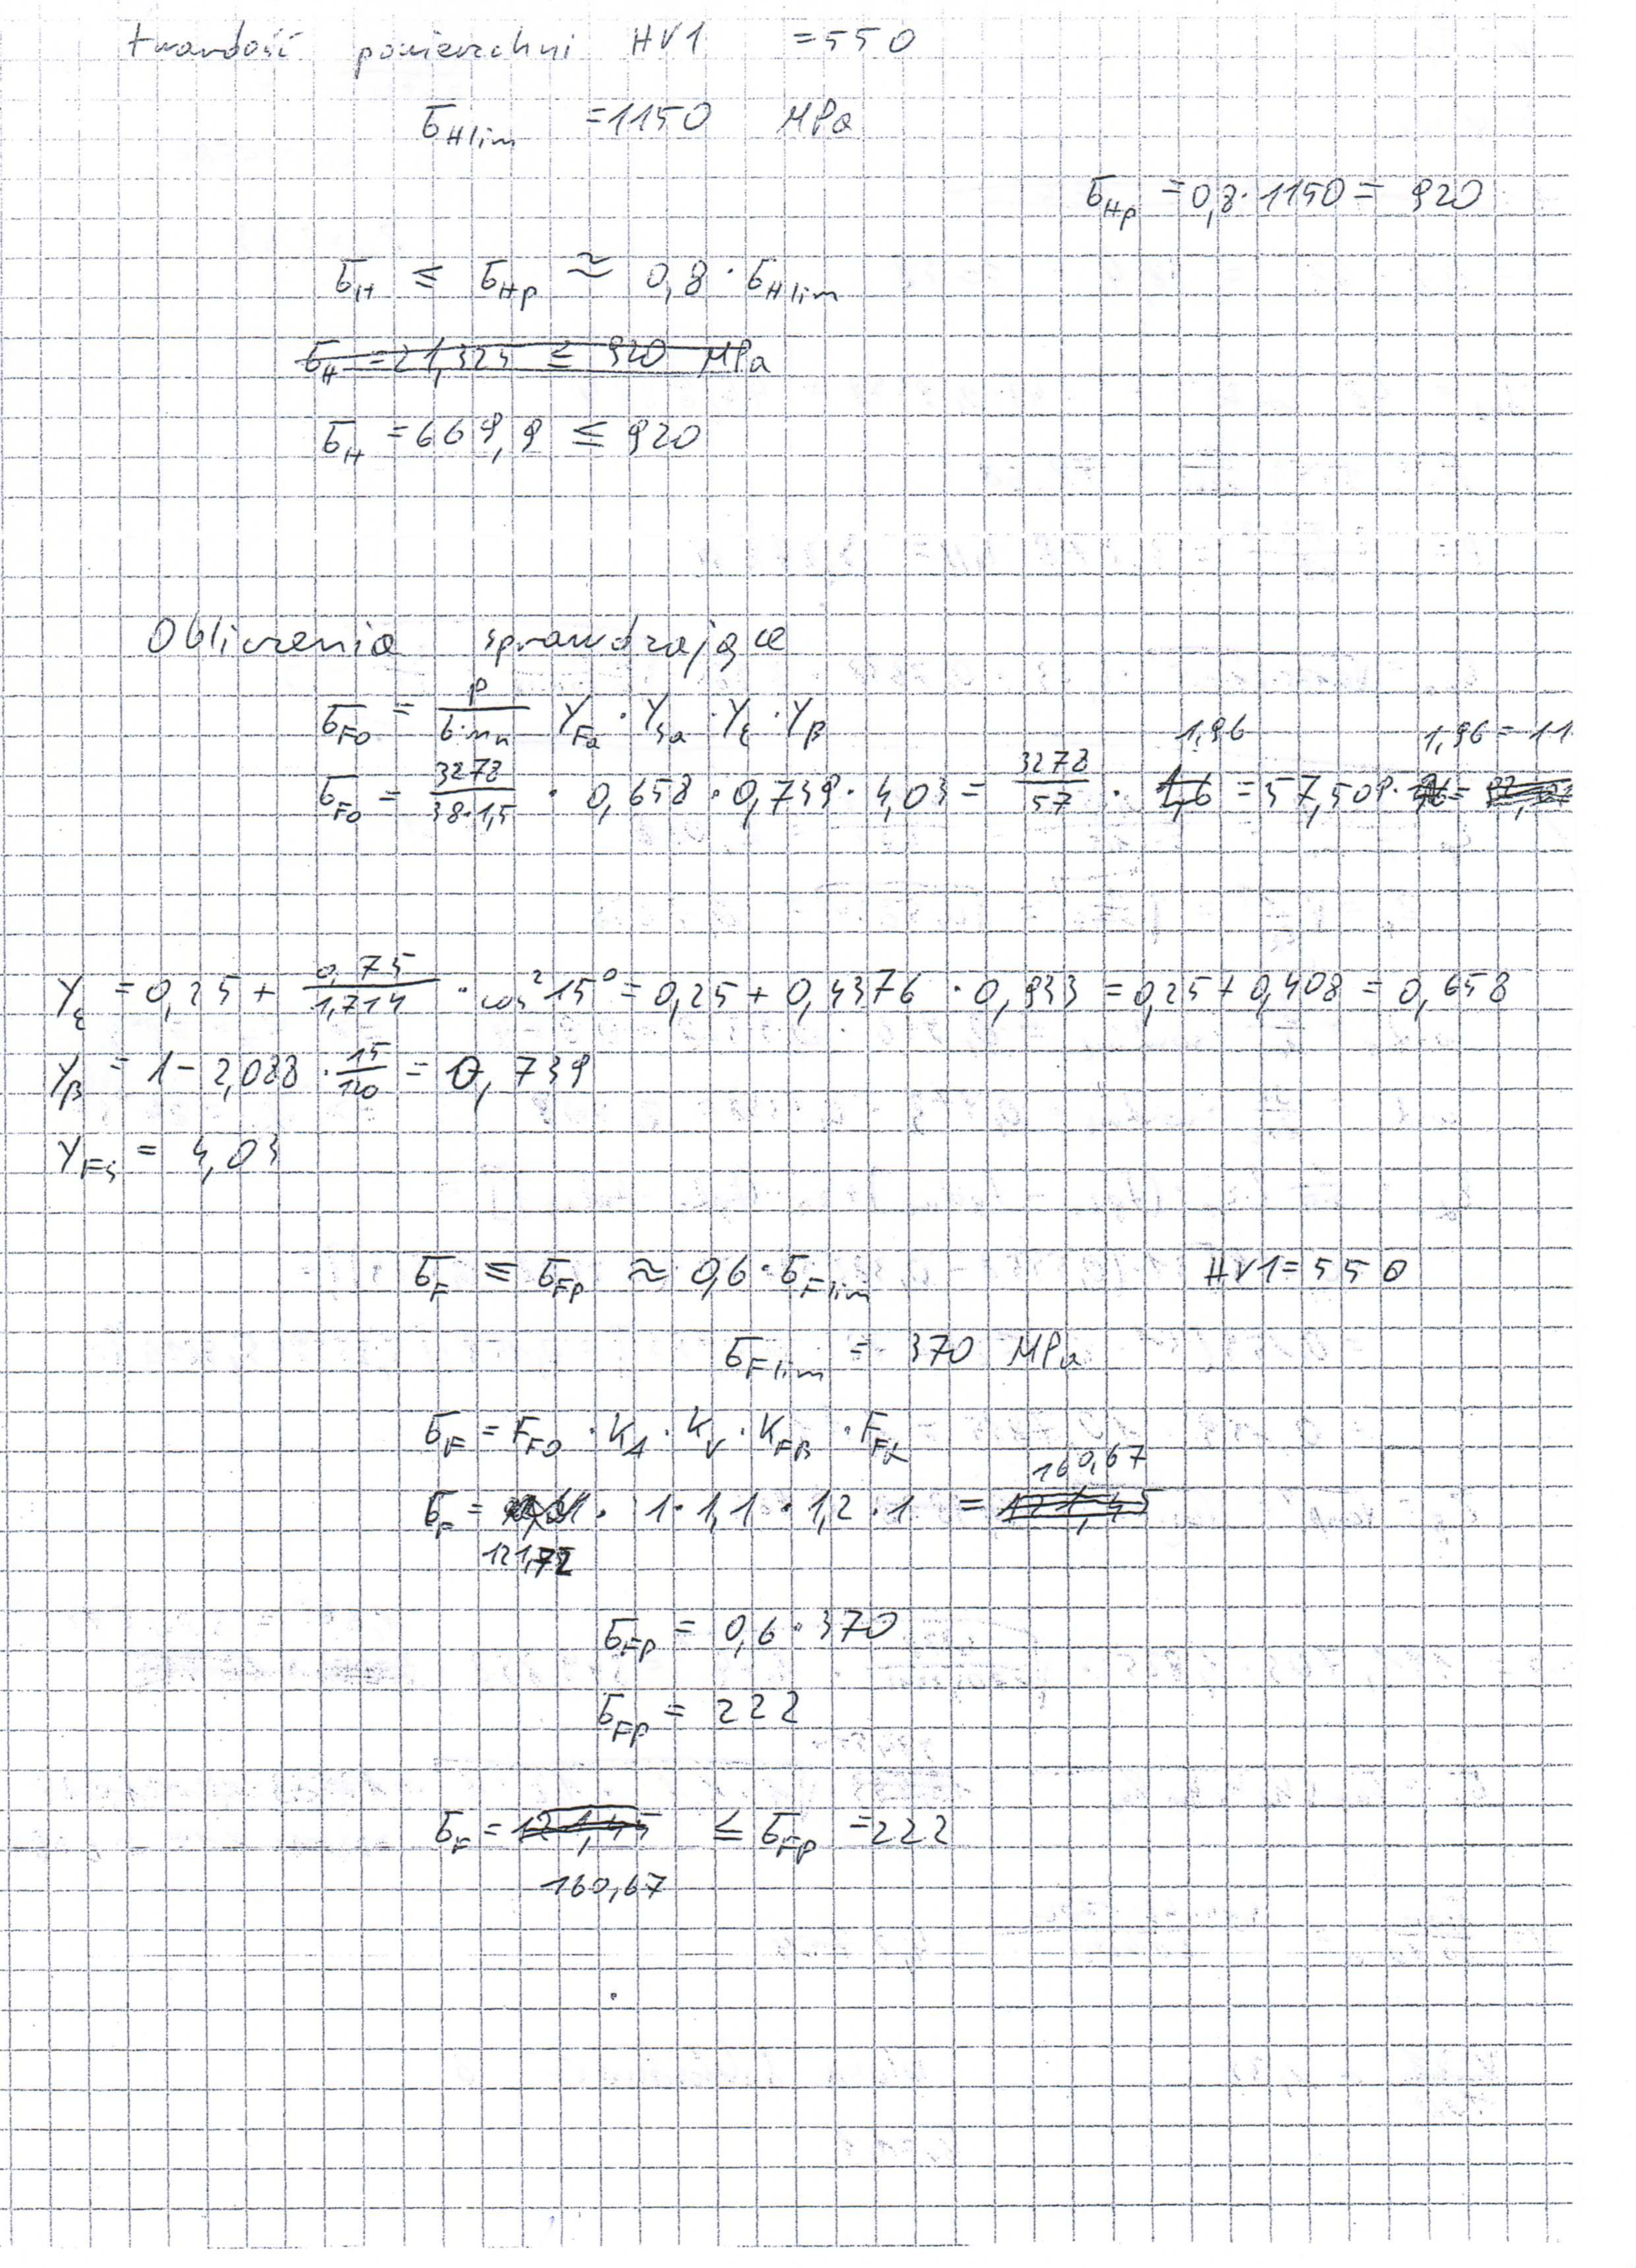 twardość powierzchni HV1 = 550
σHlim = 1150 MPa
σHp = 0,8 · 1150 = 920
σH ≤ σHp ≈ 0,8 · σHlim
σH = 21,325 ≤ 920 MPa
σH = 669,9 ≤ 920
Obliczenia sprawdzające
σFo = P / b·mn YFa · YSa · Yε · Yβ
1,96 1,96 = 11
σFo = 3278 / 38·1,5 · 0,658 · 0,739 · 4,03 = 3278 / 57 · 1,6 = 57,509 ·
Yε = 0,25 + 0,75 / 1,714 · cos² 15° = 0,25 + 0,4376 · 0,933 = 0,25 + 0,408 = 0,658
Yβ = 1 - 2,088 · 15 / 120 = 0,739
YFS = 4,03
σF ≤ σFp ≈ 0,6 · σFlim HV1 = 550
σFlim = 370 MPa
σF = FFO · KA · KV · KFβ · FFα
160,67
σF = · 1 · 1,1 · 1,2 · 1 = 121,45
121,72
σFp = 0,6 · 370
σFp = 222
σF = 121,45 ≤ σFp = 222
160,67